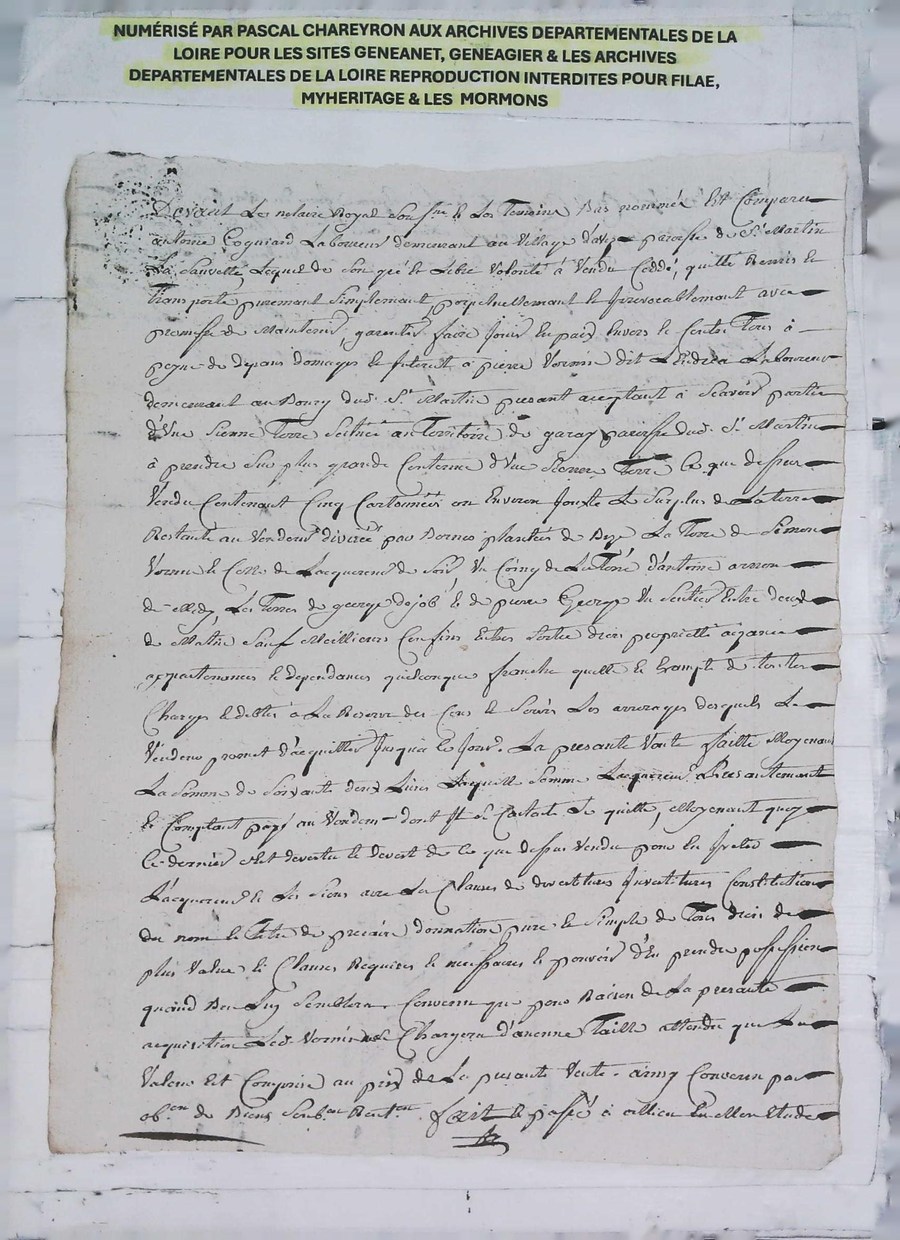 NUMÉRISÉ PAR PASCAL CHAREYRON AUX ARCHIVES DEPARTEMENTALES DE LA
LOIRE POUR LES SITES GENEANET, GENEAGIER & LES ARCHIVES
DEPARTEMENTALES DE LA LOIRE REPRODUCTION INTERDITES POUR FILAE,
MYHERITAGE & LES MORMONS
Devant Le notaire Royal Sousne. & Les Temoins Bas nommés Est Comparu
antoine Cogniard Laboureur demeurant au Village paroisse de St Martin
La Sauveté Lequel de Son gré & Libre Volonté à Vendu Cedde, quitté Remis &
Transporte purement Simplement perpetuellement & Irrevocablement avec
promesse de Maintenir, garentir faire Jouir En paix Envers & Contre Tous à
peyne de depans domages & Interet à pierre Vernin dit Laboureur
demeurant au Bourg dud. St Martin presant aceptant à Scavoir partie
d'Une Sienne Terre Scituée au Territoire de garay paroisse dud. St Martin
à prendre Sur plus grande Contenue d'Une Sienne Terre Ce que dessus
Vendu Contenant Cinq Cartonnées ou Environ Jouxte Le Surplus de La terre
Restante au Vendeur divisée par Bornes plantées de Bize La Terre de Simon
Vernin & Celle de Lacquereur de Soir Un Coing de La Terre d'antoine
de Midy, Les Terres de george dejob & de pierre George Un Sentier Entre deux
de Matin Sauf Meilleurs Confins Entree Sortie droi proprietté
appartenances & dependances quelconque franche quitte & Exempte de toutes
Charges & debtes à La Reserve des Cens & Servis Les arrerages desquels Le
Vendeur promet d'acquitter Jusqua Ce Jour. La presante Vante faitte Moyenant
La Somme de Soixante deux Livres Laquelle Somme Lacquereur à Presantement
& Comptant payé au Vendeur dont Il Se Contante & quitte, Moyenant quoy
Ce dernier S'est devestu & devest de Ce que dessus Vendu pour En
L'acquereur & Les Siens avec La Clauses de devestitures Investitures Constitution
du nom & Titre de precaire donnation pure & Simple de Tous drois de
plus Value & Clauses Requises & necessaires & pouvoir d'En prendre possession
quand Bon Luy Semblera Convenu que pour Raison de La presante
acquisition Led. Vernin Se Chargera d'aucune Taille attendu que La
Valeur Est Comprise au prix de La presante Vente. ainsy Convenu par
obon. de Biens Fait & passé à allieu En Mon Etude